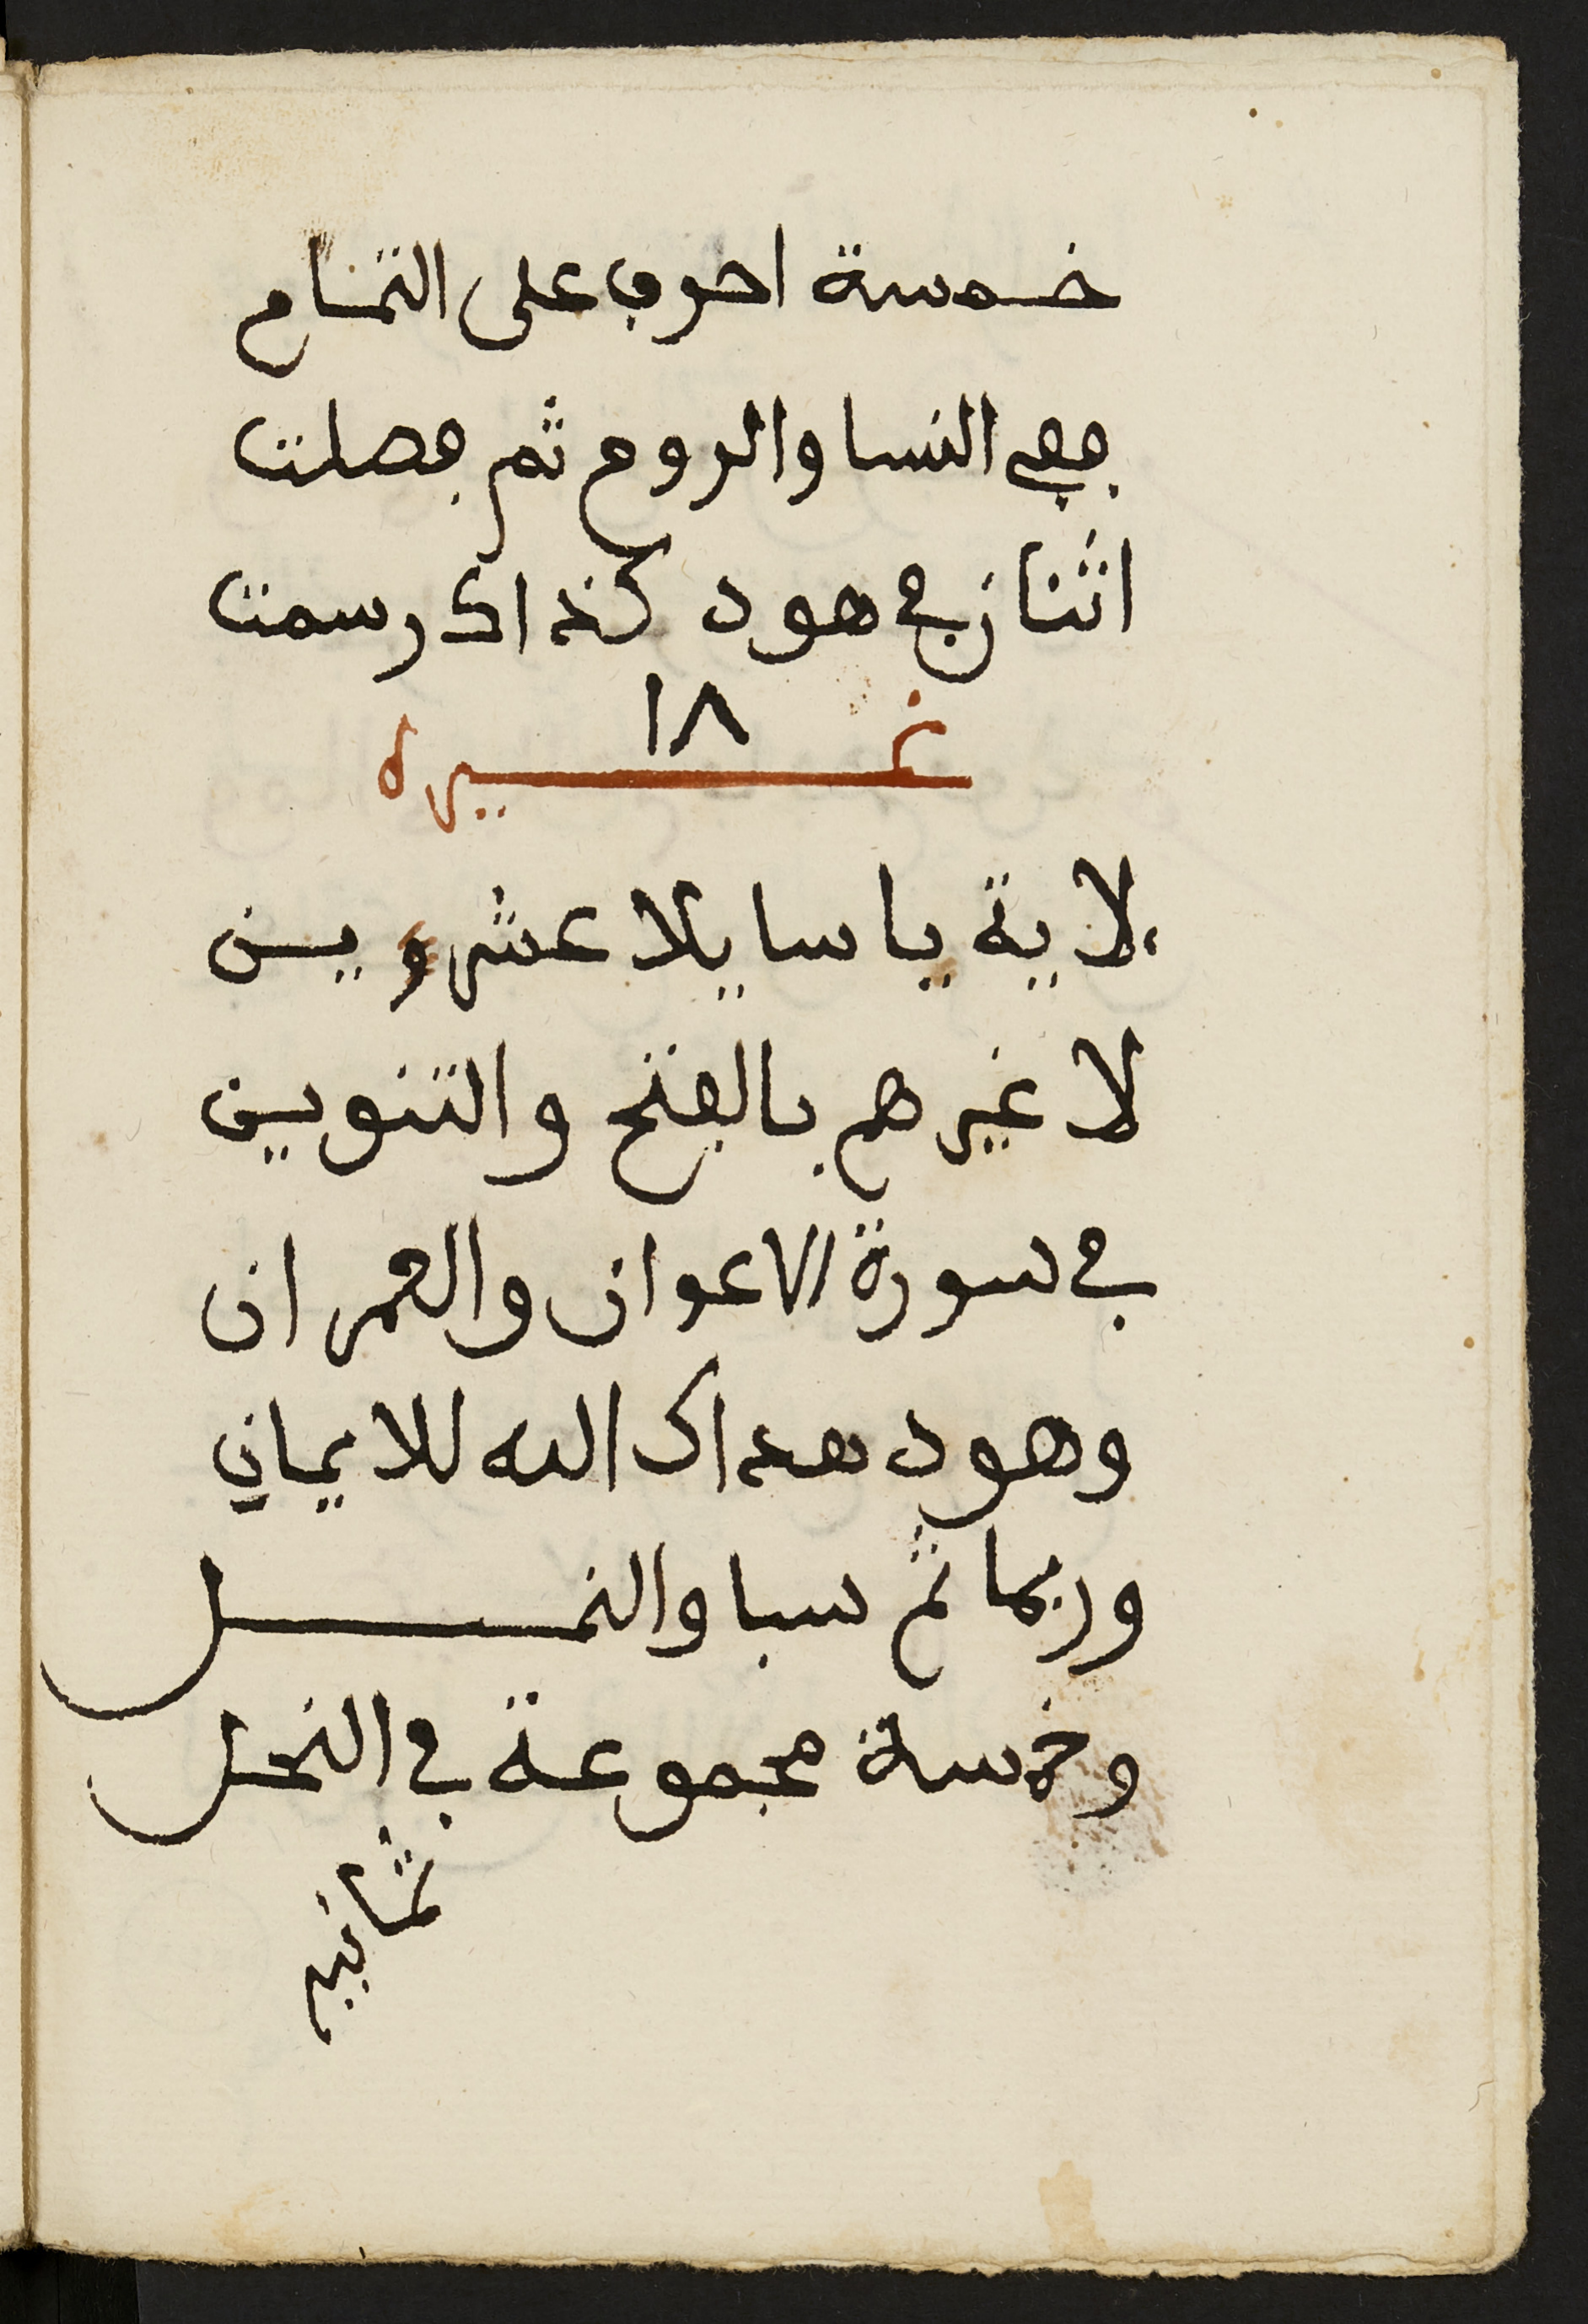 خمسة احرف على التمام
ففي النسا والروم ثم فصلت
اثنان في هود كذاك رسمت
١٨
غيره
لاية يا سايلا عشروين
لا غيرهم بالفتح والتنوين
في سورة الاعوان والعمران
وهود هداك الله للايمان
وربما ثم سبا والنمل
وخمسة مجموعة في النحل
ثمانية